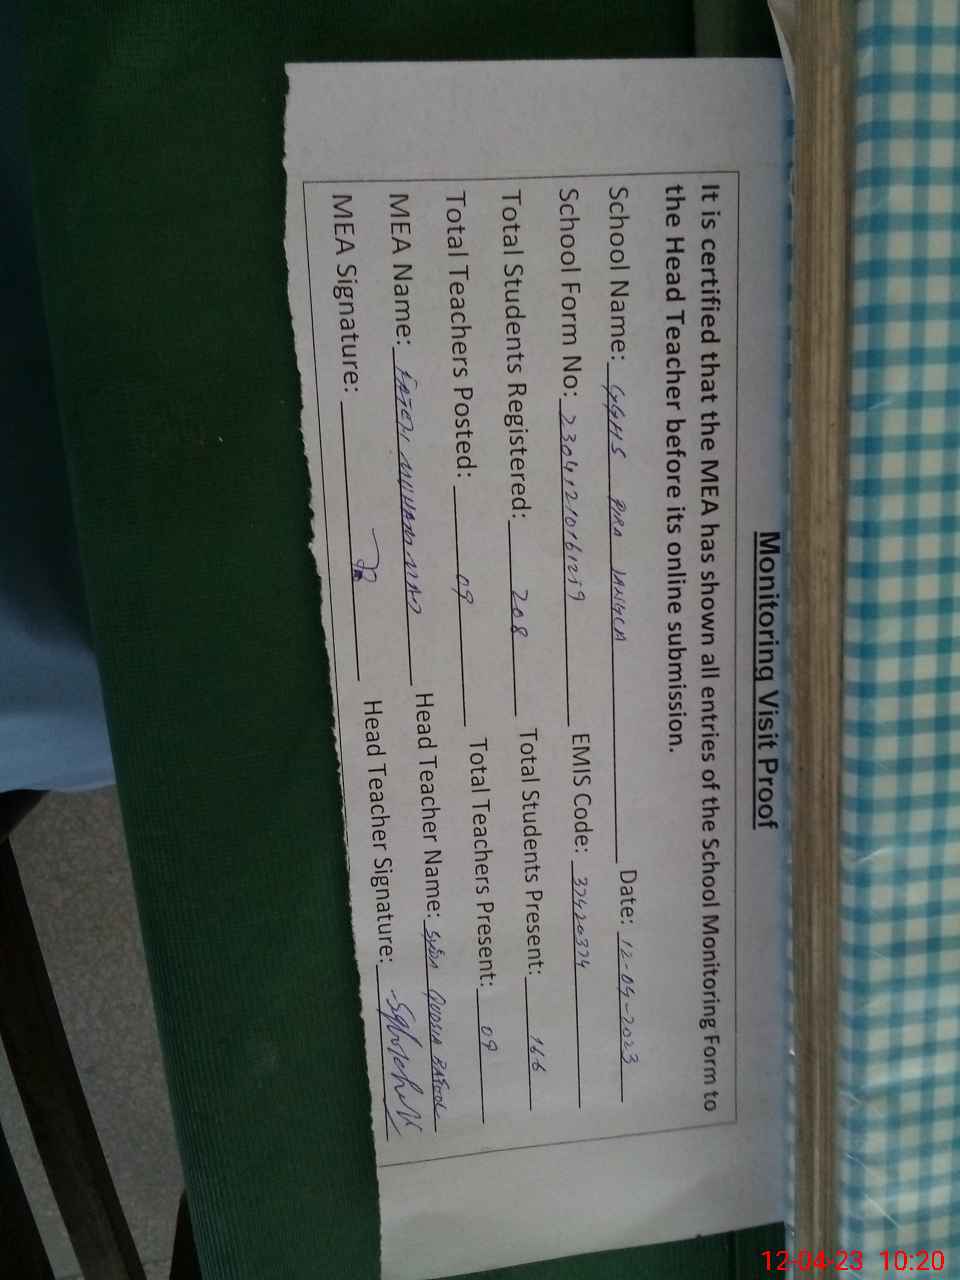 Monitoring Visit Proof
It is certified that the MEA has shown all entries of the School Monitoring Form to
the Head Teacher before its online submission.
School Name: GGHS PIRA JANGLA Date: 12-04-2023
School Form No: EMIS Code: 37420374
Total Students Registered: 208 Total Students Present: 166
Total Teachers Posted: 09 Total Teachers Present: 09
MEA Name: MUHAMMAD Head Teacher Name: BATOOL
MEA Signature: Head Teacher Signature:
12-04-23 10:20